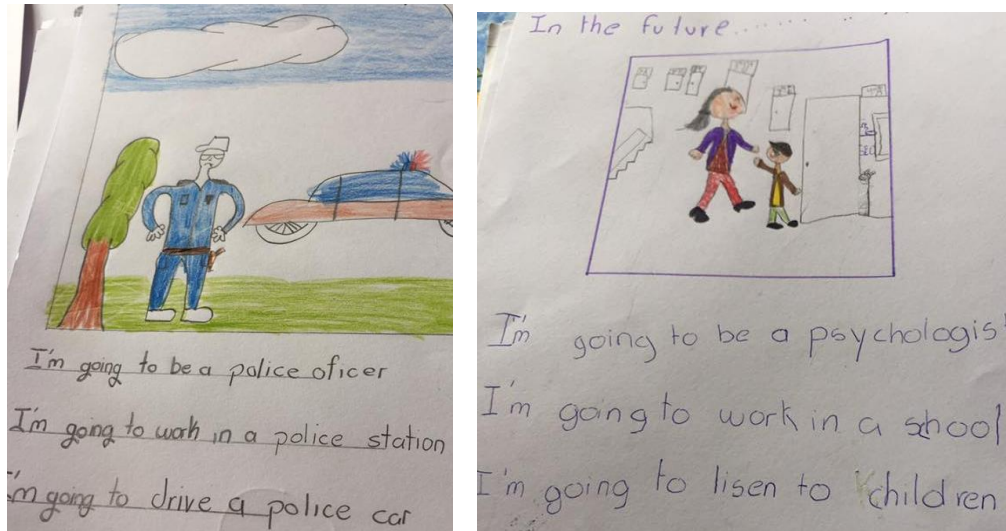 I'm going to be a police oficer
I'm going to work in a police station
I'm going to drive a police car
In the future......
I'm going to be a psychologis
I'm going to work in a school
I'm going to lisen to children